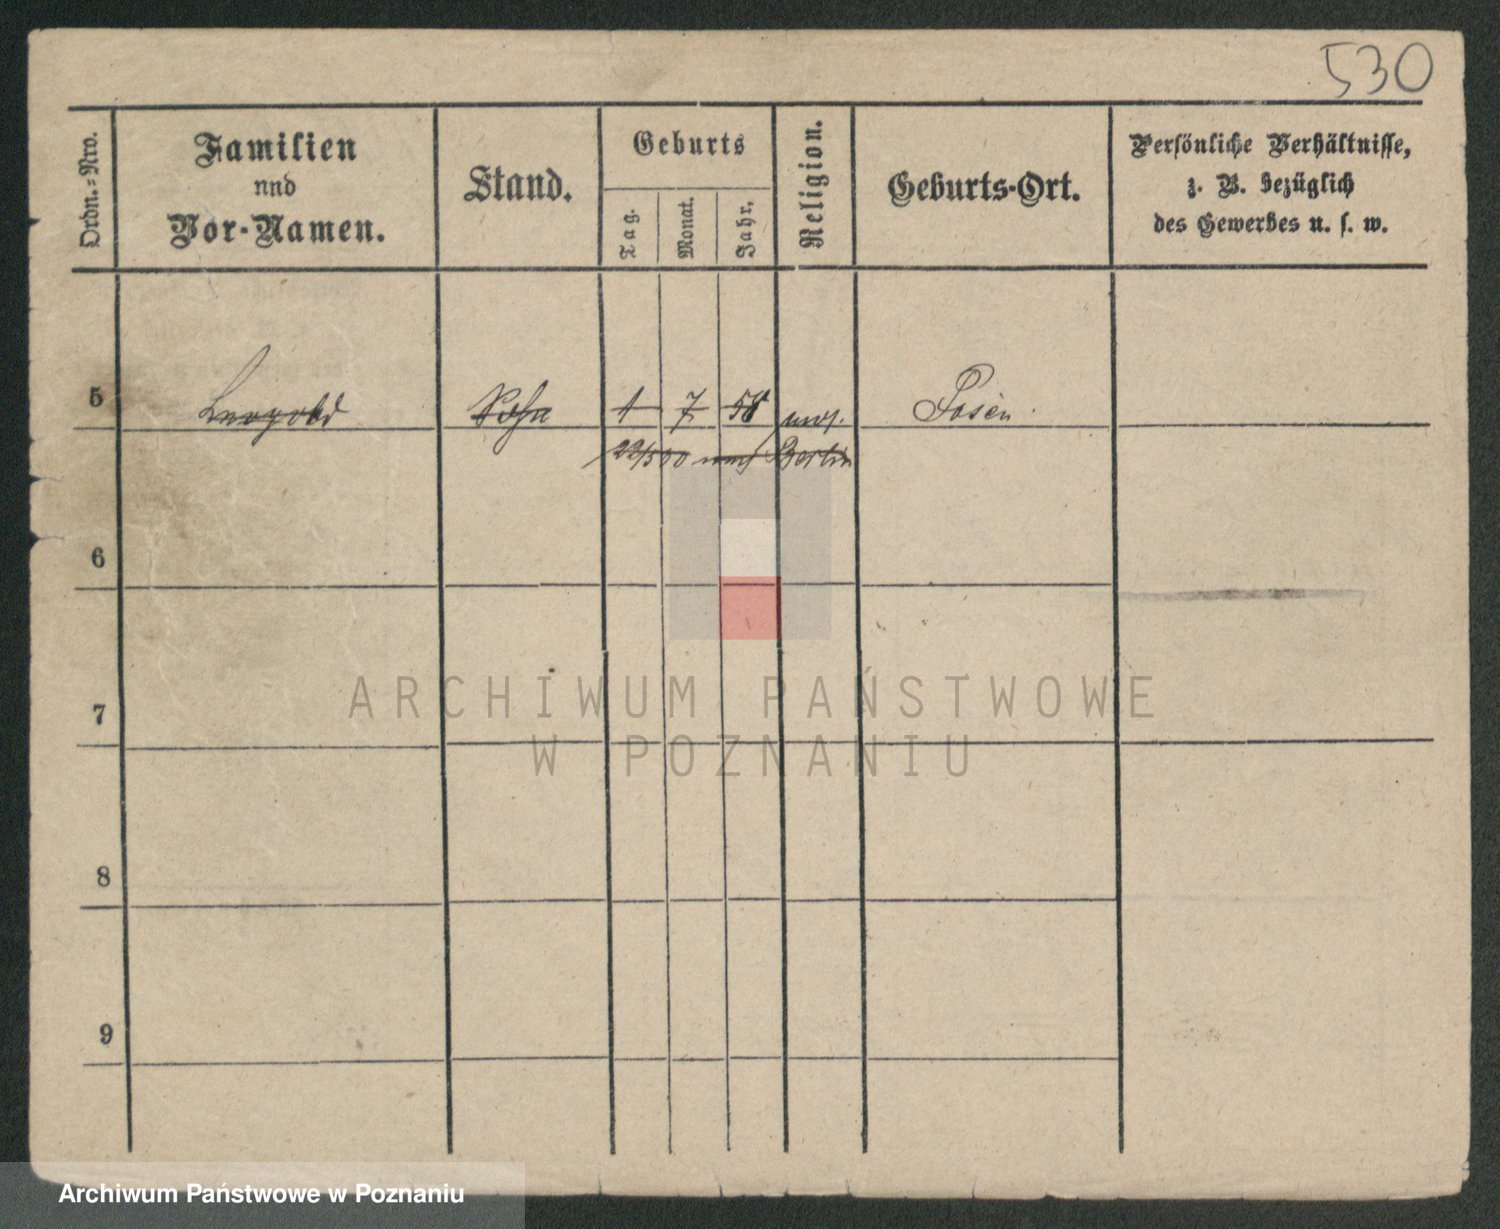 530
Ordn.-Nro.
Familien
nnd
Vor-Namen.
Stand.
Geburts
Tag.
Monat.
Jahr.
Religion.
Geburts-Ort.
Persönliche Verhältnisse,
z. B. bezüglich
des Gewerbes u. s. w.
5 Leopold Sohn 1 7 58 mos. Posen
nach Berlin
6
7
8
9
ARCHIWUM PAŃSTWOWE
W POZNANIU
Archiwum Państwowe w Poznaniu